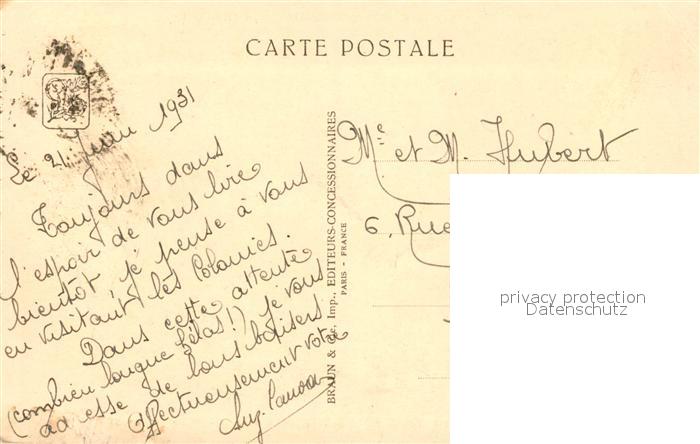 CARTE POSTALE
Le 21 Juin 1931
Toujours dans
l'espoir de vous lire
bientôt, je pense à vous
en visitant les Colonies.
Dans cette attente
(combien longue hélas!) je vous
adresse de bons baisers
Affectueusement votre
BRAUN & Cie, Imp., EDITEURS-CONCESSIONNAIRES
PARIS - FRANCE
Me et M. Hubert
6, Rue
privacy protection
Datenschutz